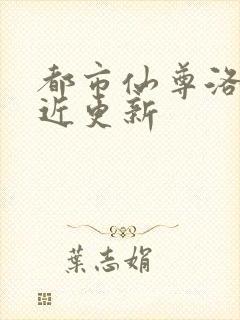 都市仙尊洛
近更新
葉志娟